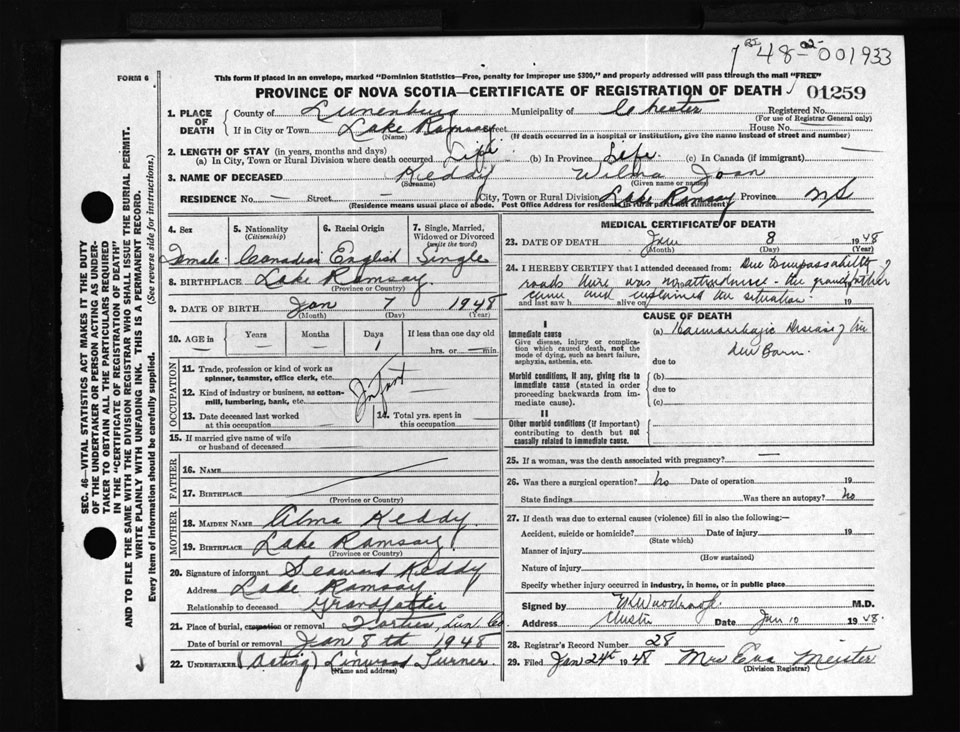 1948-02-001933
FORM 6
This form if placed in an envelope, marked "Dominion Statistics—Free, penalty for improper use $300," and properly addressed will pass through the mail "FREE"
PROVINCE OF NOVA SCOTIA—CERTIFICATE OF REGISTRATION OF DEATH 01259
1. PLACE OF DEATH
County of Lunenburg Municipality of Chester Registered No.
(For use of Registrar General only)
If in City or Town Lake Ramsay Street House No. —
(Name) (If death occurred in a hospital or institution, give the name instead of street and number)
2. LENGTH OF STAY (in years, months and days)
(a) In City, Town or Rural Division where death occurred Life (b) In Province Life (c) In Canada (if immigrant) —
3. NAME OF DECEASED Keddy Wilma Joan
(Surname) (Given name or names)
RESIDENCE No. — Street — City, Town or Rural Division Lake Ramsay Province N.S
(Residence means usual place of abode. Post Office Address for residents in rural parts sufficient)
4. Sex 5. Nationality (Citizenship) 6. Racial Origin 7. Single, Married, Widowed or Divorced (write the word)
Female Canadian English Single
8. BIRTHPLACE Lake Ramsay
(Province or Country)
9. DATE OF BIRTH Jan 7 1948
(Month) (Day) (Year)
10. AGE in Years — Months — Days 1 If less than one day old
hrs. or — min.
OCCUPATION
11. Trade, profession or kind of work as spinner, teamster, office clerk, etc.
12. Kind of industry or business, as cotton-mill, lumbering, bank, etc.
Infant
13. Date deceased last worked at this occupation
14. Total yrs. spent in this occupation
15. If married give name of wife or husband of deceased
FATHER
16. NAME
17. BIRTHPLACE
(Province or Country)
MOTHER
18. MAIDEN NAME Alma Keddy
19. BIRTHPLACE Lake Ramsay
(Province or Country)
20. Signature of informant Seaward Keddy
Address Lake Ramsay
Relationship to deceased Grandfather
21. Place of burial, cremation or removal Forties, Lun. Co
Date of burial or removal Jan 8th 1948
22. UNDERTAKER (Acting) Linwood Turner
(Name and address)
MEDICAL CERTIFICATE OF DEATH
23. DATE OF DEATH Jan 8 1948
(Month) (Day) (Year)
24. I HEREBY CERTIFY that I attended deceased from: Due to impassability of
roads there was no attendance - the grandfather
came and explained the situation. 19
and last saw h alive on
CAUSE OF DEATH
I
Immediate cause
Give disease, injury or complication which caused death, not the mode of dying, such as heart failure, asphyxia, asthenia, etc.
(a) Haemorrhagic Disease of the
New Born
due to
Morbid conditions, if any, giving rise to immediate cause (stated in order proceeding backwards from immediate cause).
(b)
due to
(c)
II
Other morbid conditions (if important) contributing to death but not causally related to immediate cause.
25. If a woman, was the death associated with pregnancy? —
26. Was there a surgical operation? No Date of operation 19
State findings Was there an autopsy? No
27. If death was due to external causes (violence) fill in also the following:—
Accident, suicide or homicide? Date of injury 19
(State which)
Manner of injury
(How sustained)
Nature of injury
Specify whether injury occurred in industry, in home, or in public place
Signed by M.D.
Address Chester Date Jan 10 1948
28. Registrar's Record Number 28
29. Filed Jan 24th 1948 Mrs Eva Meister
(Division Registrar)
SEC. 46—VITAL STATISTICS ACT MAKES IT THE DUTY
OF THE UNDERTAKER OR PERSON ACTING AS UNDER-
TAKER TO OBTAIN ALL THE PARTICULARS REQUIRED
IN THE "CERTIFICATE OF REGISTRATION OF DEATH"
AND TO FILE THE SAME WITH THE DIVISION REGISTRAR WHO SHALL ISSUE THE BURIAL PERMIT.
WRITE PLAINLY WITH UNFADING INK. THIS IS A PERMANENT RECORD.
Every item of information should be carefully supplied. (See reverse side for instructions.)